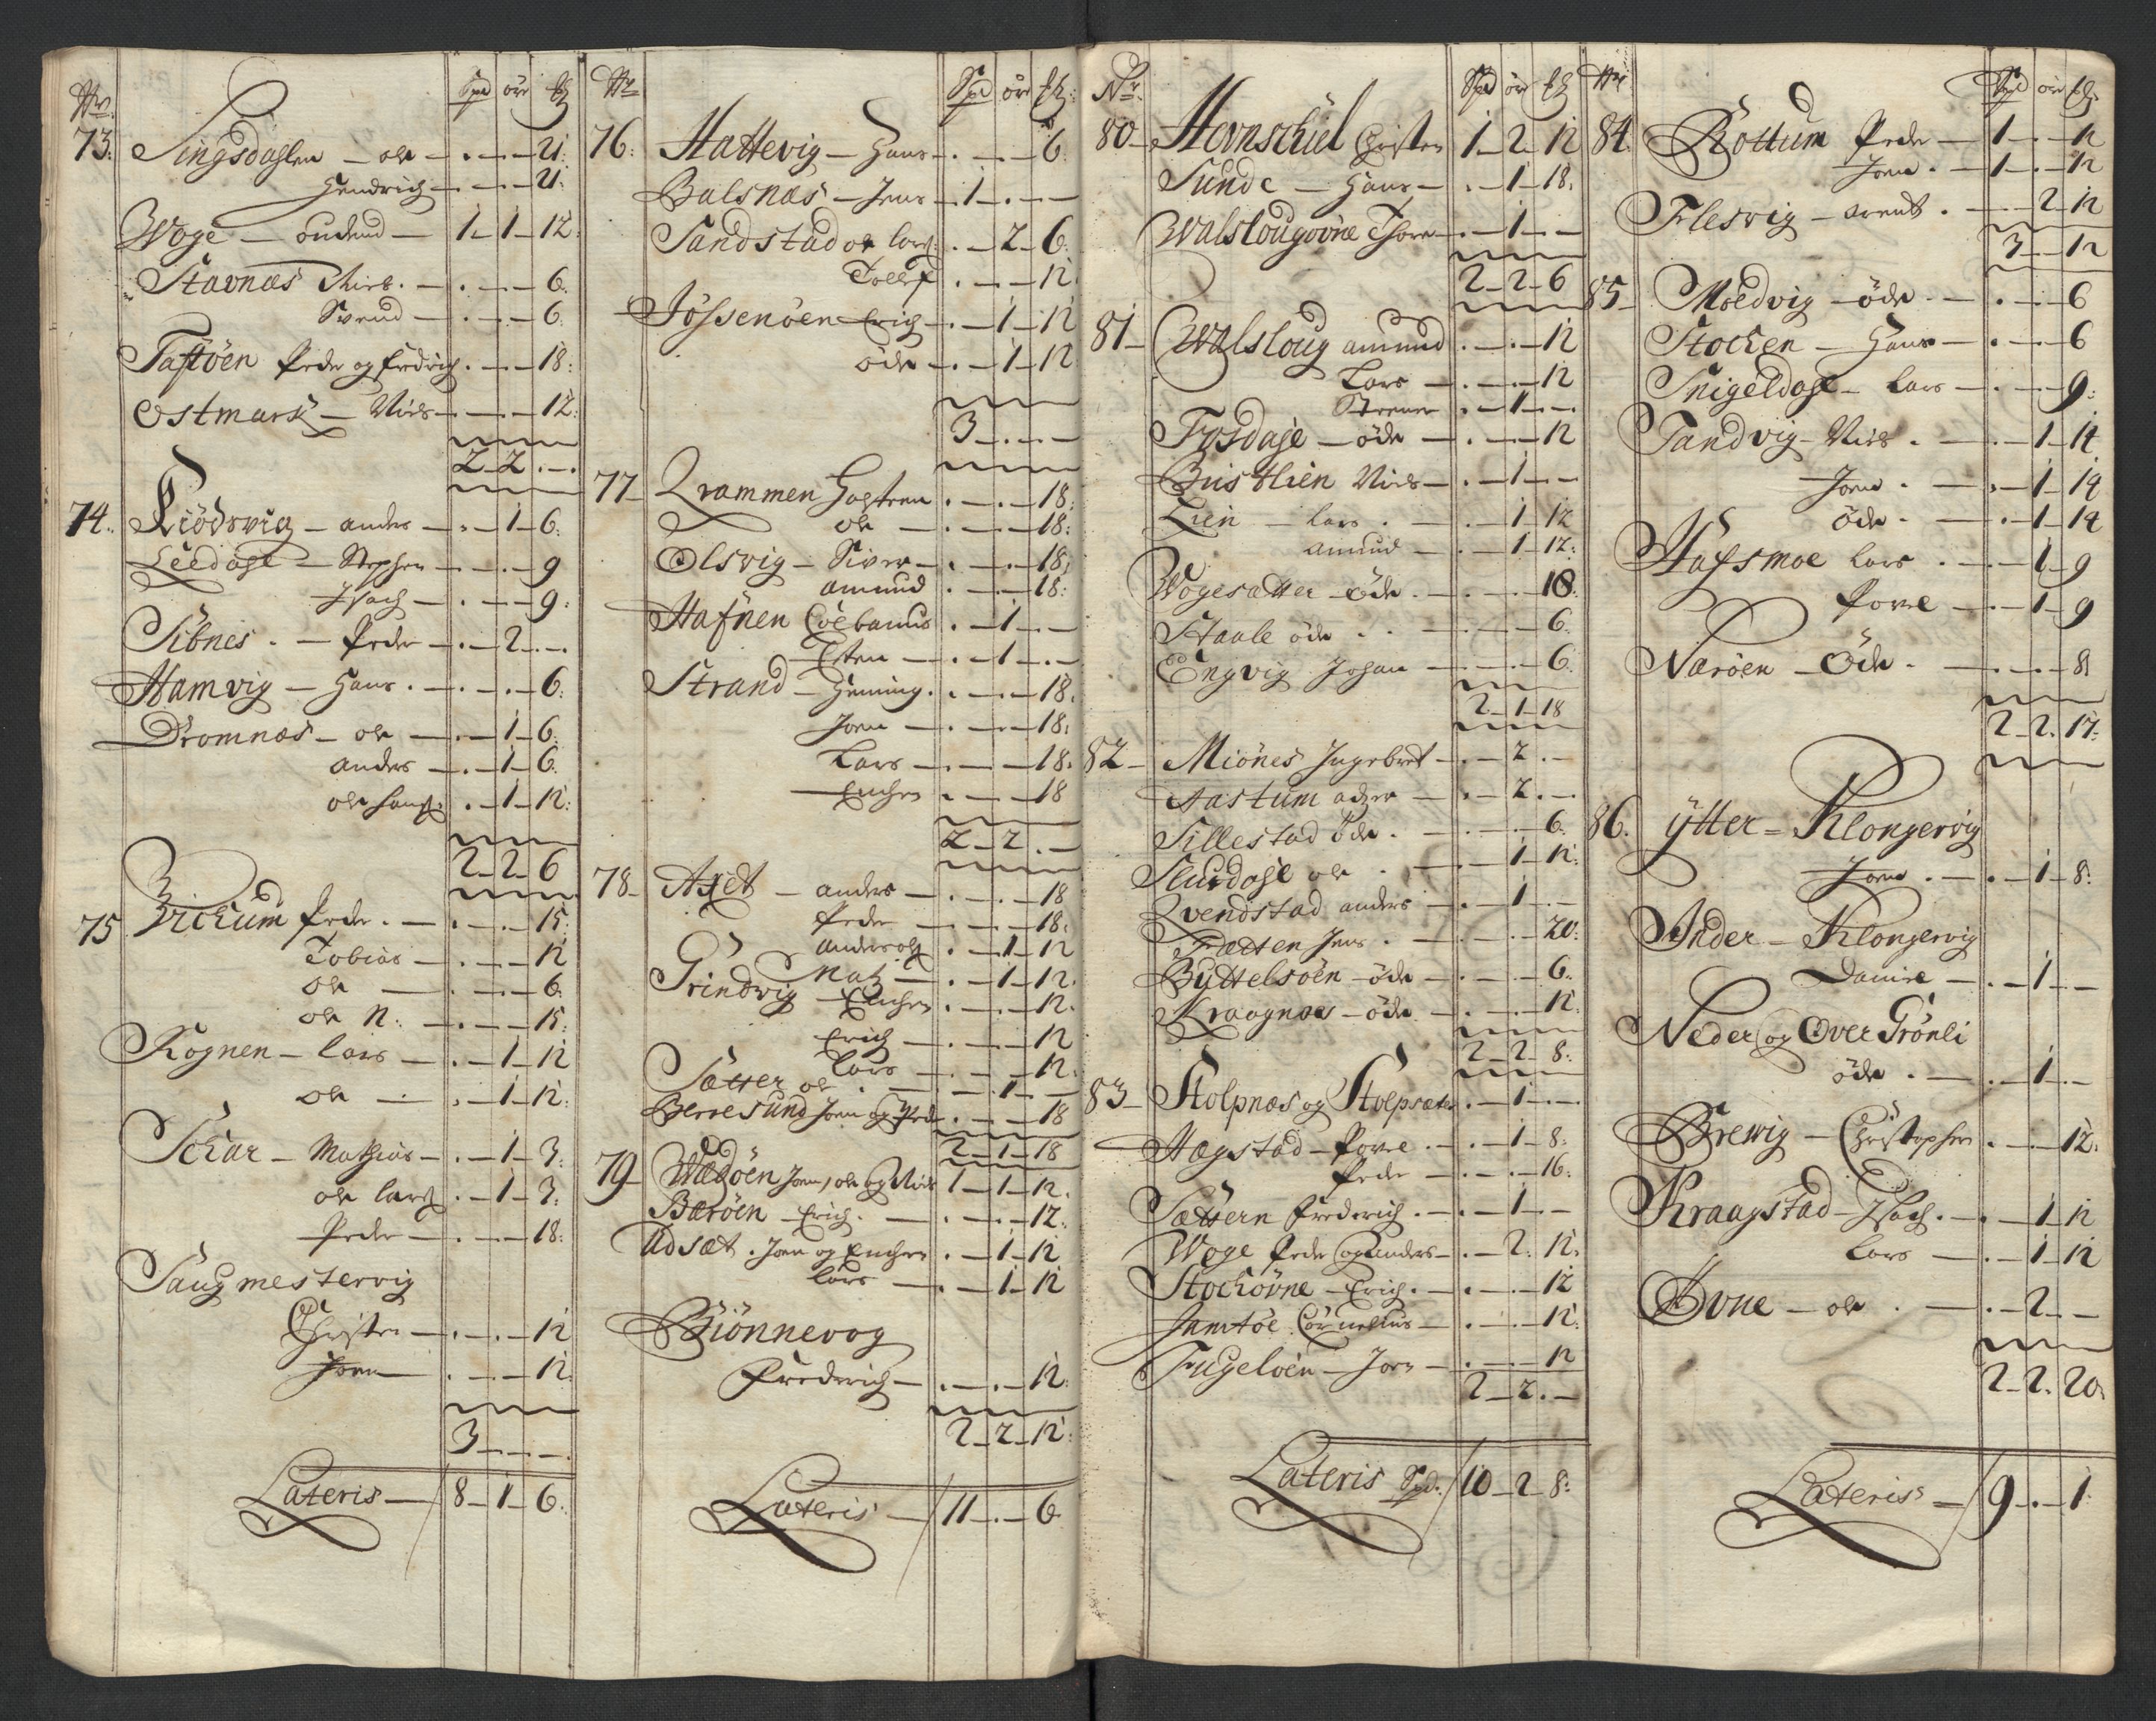 No. Spd ör ß
73. Singsdahlen – ole – . – . – 21.
Hendrich – . – . – 21.
Woge – oudend – 1 – 1 – 12
Stavnæs Niels . – . – . – 6.
Svend – . – . – 6.
Taftöen Peder og Fredrich . – . – 18.
Ostmark – Niels – . – . – 12.
2 – 2 . – .
74. Kiödsvig – anders – . – 1 – 6.
Leedahl – Stephen – . – . – 9
Isach – . – . – 9.
Sibnes . – Peder – . – 2 . – .
Hamvig – Hans . – . – . – 6.
Dromnæs – ole – . – 1 – 6.
anders – . – 1 – 6.
ole hans: . – 1 – 12.
2 – 2 – 6
75. Vickum Peder . – . – . – 15.
Tobias – . – . – 12
ole – . – . – 6.
ole N. – . – . – 15.
Rognen – lars – . – 1 – 12
ole – . – 1 – 12.
Schar – Mathias – . – 1 – 3.
ole lars . – 1 – 3.
Peder – . – . – 18.
Saugmestervig
Christen – . – . – 12
Joen – . – . – 12.
3 – . – .
Lateris – 8 – 1 – 6.
No. Spd ör ß
76. Hattevig – Hans – . – . – 6.
Balsnæs – Jens – 1 – . – .
Sandstad ole lars . – 2 – 6.
Tollef . – . – 12.
Jössenöen Erich – . – 1 – 12
öde – . – 1 – 12
3 – . – .
77 – Krammen Hagtren . – . – 18.
ole – . – . – 18.
Olsvig – Siver – . – . – 18.
amund . – . – 18.
Hafnen Coebanus . – 1 – .
Esten – . – 1 – . –
Strand – Henning . . – . – 18.
Joen – . – . – 18.
Lars – . – . – 18.
Enchen . – . – 18
2 – 2 . –
78 – Axet – anders – . – . – 18
Peder – . – . – 18.
anders ols . – 1 – 12
Grindvig Matz – . – 1 – 12.
Enchen . – . – 12.
Erich – . – . – 12
Lars – . – . – 12.
Sætter ole . – . – 1 – .
Berresund Joen og Peder . – . – 18
2 – 1 – 18
79 – Wedöen Joen, ole og Niels 1 – 1 – 12.
Bæröen – Erich . – . – . – 12.
Udsæt . Joen og Enchen . – 1 – 12
lars – . – 1 – 12
Biönnevog
Frederich – . – . – 12.
2 – 2 – 12.
Lateris – 11 – . – 6.
Nr. Spd ör ß
80 – Hernschiel Christen 1 – 2 – 12
Sunde – Hans – . – 1 – 18.
Walslougövne Thore – . – 1 – . –
2 – 2 – 6
81 – Walsloug amund . – . – 12
Lars – . – . – 12
. – 1 – .
Frosdahl – öde – . – . – 12
Buistlien Niels – . – 1 – . –
Lien – lars . – . – 1 – 12
amund – . – 1 – 12.
Wogesætter – öde . – . – . – 18.
Staale öde . . – . – . – 6.
Engvig Johan – . – . – 6.
2 – 1 – 18
82 – Miönes Ingebret – . – 2 . –
Aastum – . – 2 . – .
Sillestad öde . – . – . – 6.
Slurdahl ole . – . – 1 – 12.
Qvendstad anders – . – 1 – . –
Trætten Jens . – . – . – 20.
Byttelsöen – öde – . – . – 6.
Kraagnæs – öde . – . – . – 12.
2 – 2 – 8.
83 – Stolpnæs og Stolpsæter . – 1 – . –
Hægstad – Povel . – . – 1 – 8.
Peder – . – . – 16.
Sættern Frederich . – . – 1 – . –
Woge Peder og anders – . – 2. 12.
Stockövne – Erich . – . – . – 12
Jamtöe Cornelius – . – . – 12.
Fugelöen – Joen – . – . – 12
2 – 2 . –
Lateris Spd. 10 – 2 – 8.
No. Spd ör ß
84. Rottum Peder – 1 – . – 12
Joen . – 1 – . – 12
Flesvig – arent . – . – 2 – 12
3 – . – 12
85 – Moldvig – öde . – . – . – 6
Stocken – Hans – . – . – 6
Snigeldahl – Lars – . – . – 9.
Sandvig – Niels . – . – 1 – 14
Joen . – . – 1 – 14
öde . – . – 1 – 14
Hafsmoe Lars . – . – 1 – 9
Povel – . – 1 – 9
Næröen – Öde . – . – . – 8
2 – 2. 17.
86. ÿtter – Klongervig
Joen . – . – 1 – 8.
Inder – Klongervig
Daniel – . – 1 – –
Neder og Over Grönli
öde . – . – 1 – . –
Brewig – Christopher . – . – 12.
Kraagstad – Isach . – . – 1 – 12
Lars – . – 1 – 12
Hvne – ole . – . – 2 – –
2 – 2. 20.
Lateris – 9 – . – 1.